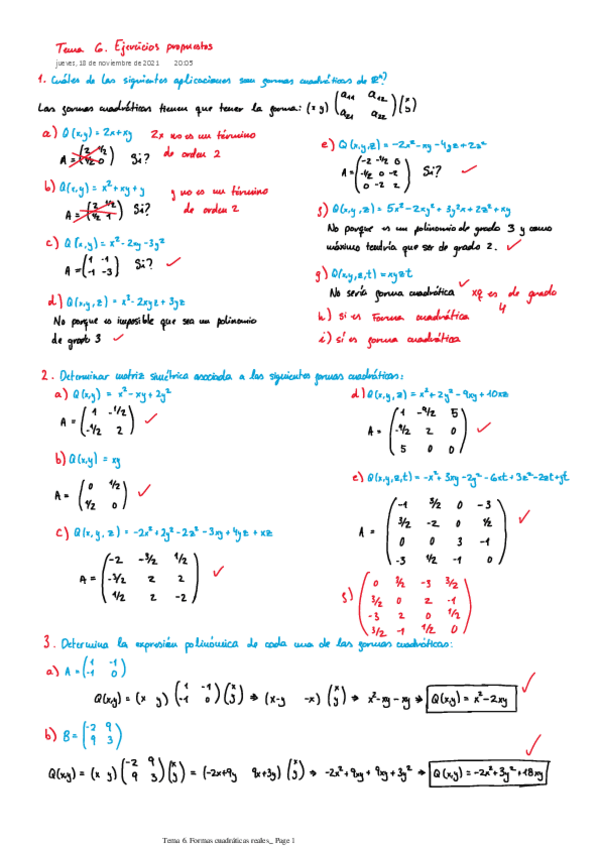 Tema 6. Ejercicios propuestos
jueves, 18 de noviembre de 2021 20:05
1. Cuáles de las siguientes aplicaciones son formas cuadráticas de ℝⁿ?
Las formas cuadráticas tienen que tener la forma: (x y) (a₁₁ a₁₂ / a₂₁ a₂₂) (x / y)
a) Q(x,y) = 2x+xy 2x no es un término
A = (2 1/2 / 1/2 0) Si? de orden 2
b) Q(x,y) = x²+xy+y y no es un término
A = (2 1/2 / 1/2 1) Si? de orden 2
c) Q(x,y) = x²-2xy-3y²
A = (1 -1 / -1 -3) Si? ✓
d) Q(x,y,z) = x³-2xyz+3yz
No porque es imposible que sea un polinomio
de grado 3 ✓
e) Q(x,y,z) = -2x²-xy-4yz+2z²
A = (-2 -1/2 0 / -1/2 0 -2 / 0 -2 2) Si? ✓
f) Q(x,y,z) = 5x²-2xy²+3y²x+2z²+xy
No porque es un polinomio de grado 3 y como
máximo tendría que ser de grado 2. ✓
g) Q(x,y,z,t) = xyzt
No sería forma cuadrática ✓ xq es de grado
4
h) si es Forma cuadrática
i) sí es forma cuadrática
2. Determinar matriz simétrica asociada a las siguientes formas cuadráticas:
a) Q(x,y) = x²-xy+2y²
A = (1 -1/2 / -1/2 2) ✓
b) Q(x,y) = xy
A = (0 1/2 / 1/2 0) ✓
c) Q(x,y,z) = -2x²+2y²-2z²-3xy+4yz+xz
A = (-2 -3/2 1/2 / -3/2 2 2 / 1/2 2 -2) ✓
d) Q(x,y,z) = x²+2y²-9xy+10xz
A = (1 -9/2 5 / -9/2 2 0 / 5 0 0) ✓
e) Q(x,y,z,t) = -x²+3xy-2y²-6xt+3z²-2zt+yt
A = (-1 3/2 0 -3 / 3/2 -2 0 1/2 / 0 0 3 -1 / -3 1/2 -1 0) ✓
f) (0 3/2 -3 3/2 / 3/2 0 2 -1 / -3 2 0 1/2 / 3/2 -1 1/2 0)
3. Determina la expresión polinómica de cada una de las formas cuadráticas:
a) A = (1 -1 / -1 0)
Q(x,y) = (x y) (1 -1 / -1 0) (x / y) ⇒ (x-y -x) (x / y) ⇒ x²-xy-xy ⇒ Q(x,y) = x²-2xy ✓
b) B = (-2 9 / 9 3)
Q(x,y) = (x y) (-2 9 / 9 3) (x / y) = (-2x+9y 9x+3y) (x / y) ⇒ -2x²+9xy+9xy+3y² ⇒ Q(x,y) = -2x²+3y²+18xy ✓
Tema 6. Formas cuadráticas reales_ Page 1